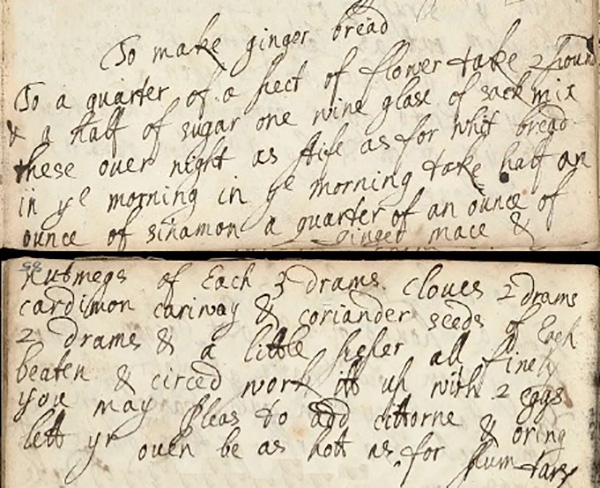 To make ginger bread
To a quarter of a pect of flower take 2 pound
& a half of sugar one wine glase of sack mix
these over night as stife as for whit bread
in ye morning in ye morning take half an
ounce of sinamon a quarter of an ounce of
ginger mace &
Nutmegs of Each 3 drams. cloues 2 drams
cardimon cariway & coriander seeds of Each
2 drams & a little peper all finely
beaten & circed work itt up with 2 eggs
you may pleas to add cittorne & oring
lett yr ouen be as hott as for plum tarts